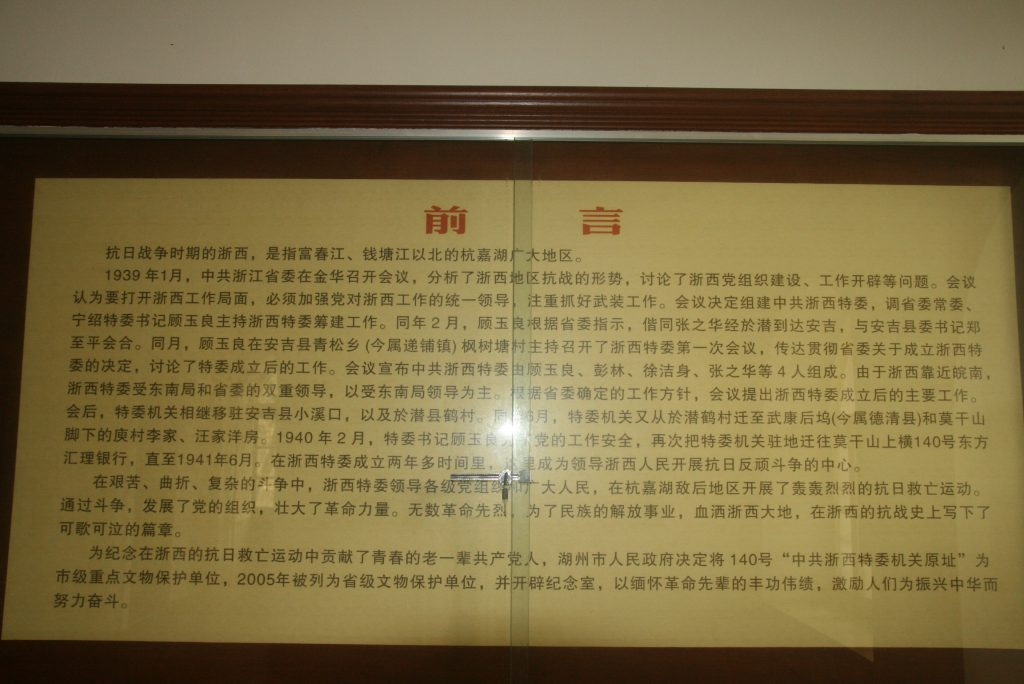 前 言
抗日战争时期的浙西，是指富春江、钱塘江以北的杭嘉湖广大地区。
1939年1月，中共浙江省委在金华召开会议，分析了浙西地区抗战的形势，讨论了浙西党组织建设、工作开辟等问题。会议
认为要打开浙西工作局面，必须加强党对浙西工作的统一领导，注重抓好武装工作。会议决定组建中共浙西特委，调省委常委、
宁绍特委书记顾玉良主持浙西特委筹建工作。同年2月，顾玉良根据省委指示，偕同张之华经於潜到达安吉，与安吉县委书记郑
至平会合。同月，顾玉良在安吉县青松乡(今属递铺镇)枫树塘村主持召开了浙西特委第一次会议，传达贯彻省委关于成立浙西特
委的决定，讨论了特委成立后的工作。会议宣布中共浙西特委由顾玉良、彭林、徐洁身、张之华等4人组成。由于浙西靠近皖南，
浙西特委受东南局和省委的双重领导，以受东南局领导为主。根据省委确定的工作方针，会议提出浙西特委成立后的主要工作。
会后，特委机关相继移驻安吉县小溪口，以及於潜县鹤村。同年6月，特委机关又从於潜鹤村迁至武康后坞(今属德清县)和莫干山
脚下的庾村李家、汪家洋房。1940年2月，特委书记顾玉良为了党的工作安全，再次把特委机关驻地迁往莫干山上横140号东方
汇理银行，直至1941年6月。在浙西特委成立两年多时间里，这里成为领导浙西人民开展抗日反顽斗争的中心。
在艰苦、曲折、复杂的斗争中，浙西特委领导各级党组织和广大人民，在杭嘉湖敌后地区开展了轰轰烈烈的抗日救亡运动。
通过斗争，发展了党的组织，壮大了革命力量。无数革命先烈，为了民族的解放事业，血洒浙西大地，在浙西的抗战史上写下了
可歌可泣的篇章。
为纪念在浙西的抗日救亡运动中贡献了青春的老一辈共产党人，湖州市人民政府决定将140号“中共浙西特委机关原址”为
市级重点文物保护单位，2005年被列为省级文物保护单位，并开辟纪念室，以缅怀革命先辈的丰功伟绩，激励人们为振兴中华而
努力奋斗。